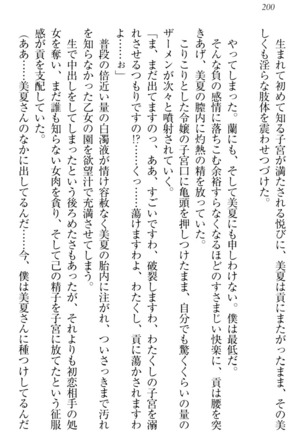 200
生まれて初めて知る子宮が満たされる悦びに、美夏は貢にまたがったまま、その美
しくも淫らな肢体を震わせつづけた。
やってしまった。蘭にも、そして美夏にも申しわけない。僕は最低だ。
そんな負の感情に落ちこむ余裕すらなくなるほどのすさまじい快楽に、貢は腰を突
きあげ、美夏の膣内に灼熱の精を放っていた。
こりこりとした令嬢の子宮口に亀頭を押しつけたまま、自分でも驚くくらいの量の
ザーメンが次々と噴射されていく。
「ま、まだ出てますのっ、ああ、すごいですわ、破裂しますわ、わたくしの子宮を溺
れさせるつもりですの!?……くっ……蕩けますわよ、わたくし、貢に蕩かされますわ
よ……お」
普段の倍近い量の白濁液が情け容赦なく美夏の胎内に注がれ、ついさっきまで汚れ
を知らなかった乙女の園を欲望汁で充満させてしまう。
生で中出しをしてしまったという後ろめたさもあったが、それよりも初恋相手の処
女を奪い、まだ誰も知らない女肉を貪り、そして己の精子を子宮に放てたという征服
感が貢を支配していた。
（ああ……美夏さんのなかに出してるんだ……今、僕は美夏さんに種つけしてるんだ